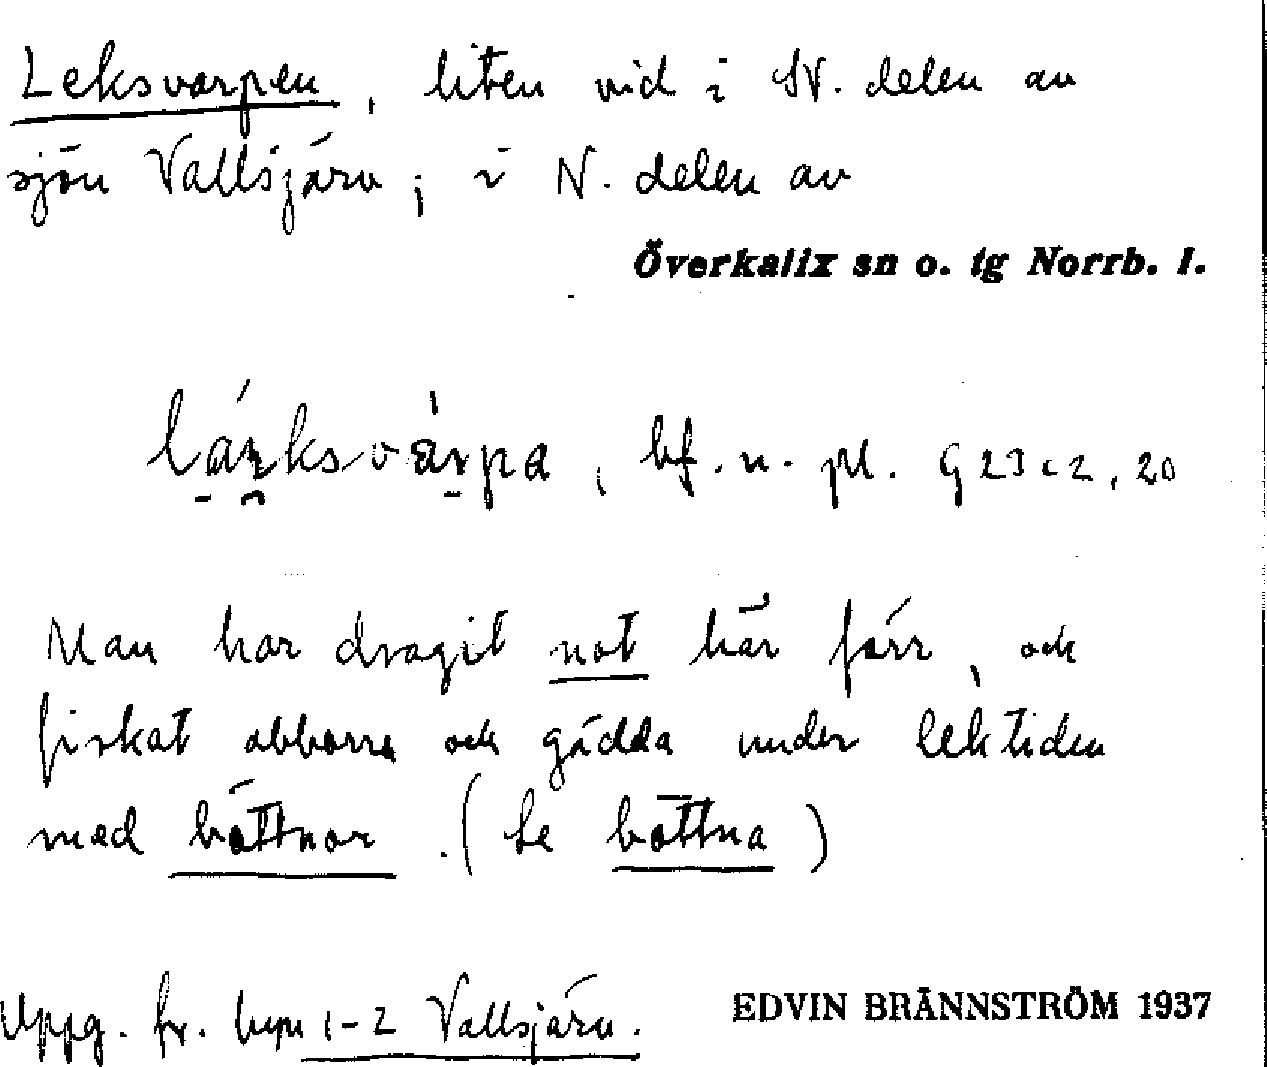 Leksvarpen, liten vid i SV. delen av
sjön Vallsjärv; i N. delen av
Överkalix sn o. tg Norrb. l.
bf. n. pl. G 23 c 2, 20
Man har dragit not här förr, och
fiskat abborre och gädda under lektiden
med böttnor. (se böttna)
Uppg. fr. byn 1-2 Vallsjärv.
EDVIN BRÄNNSTRÖM 1937